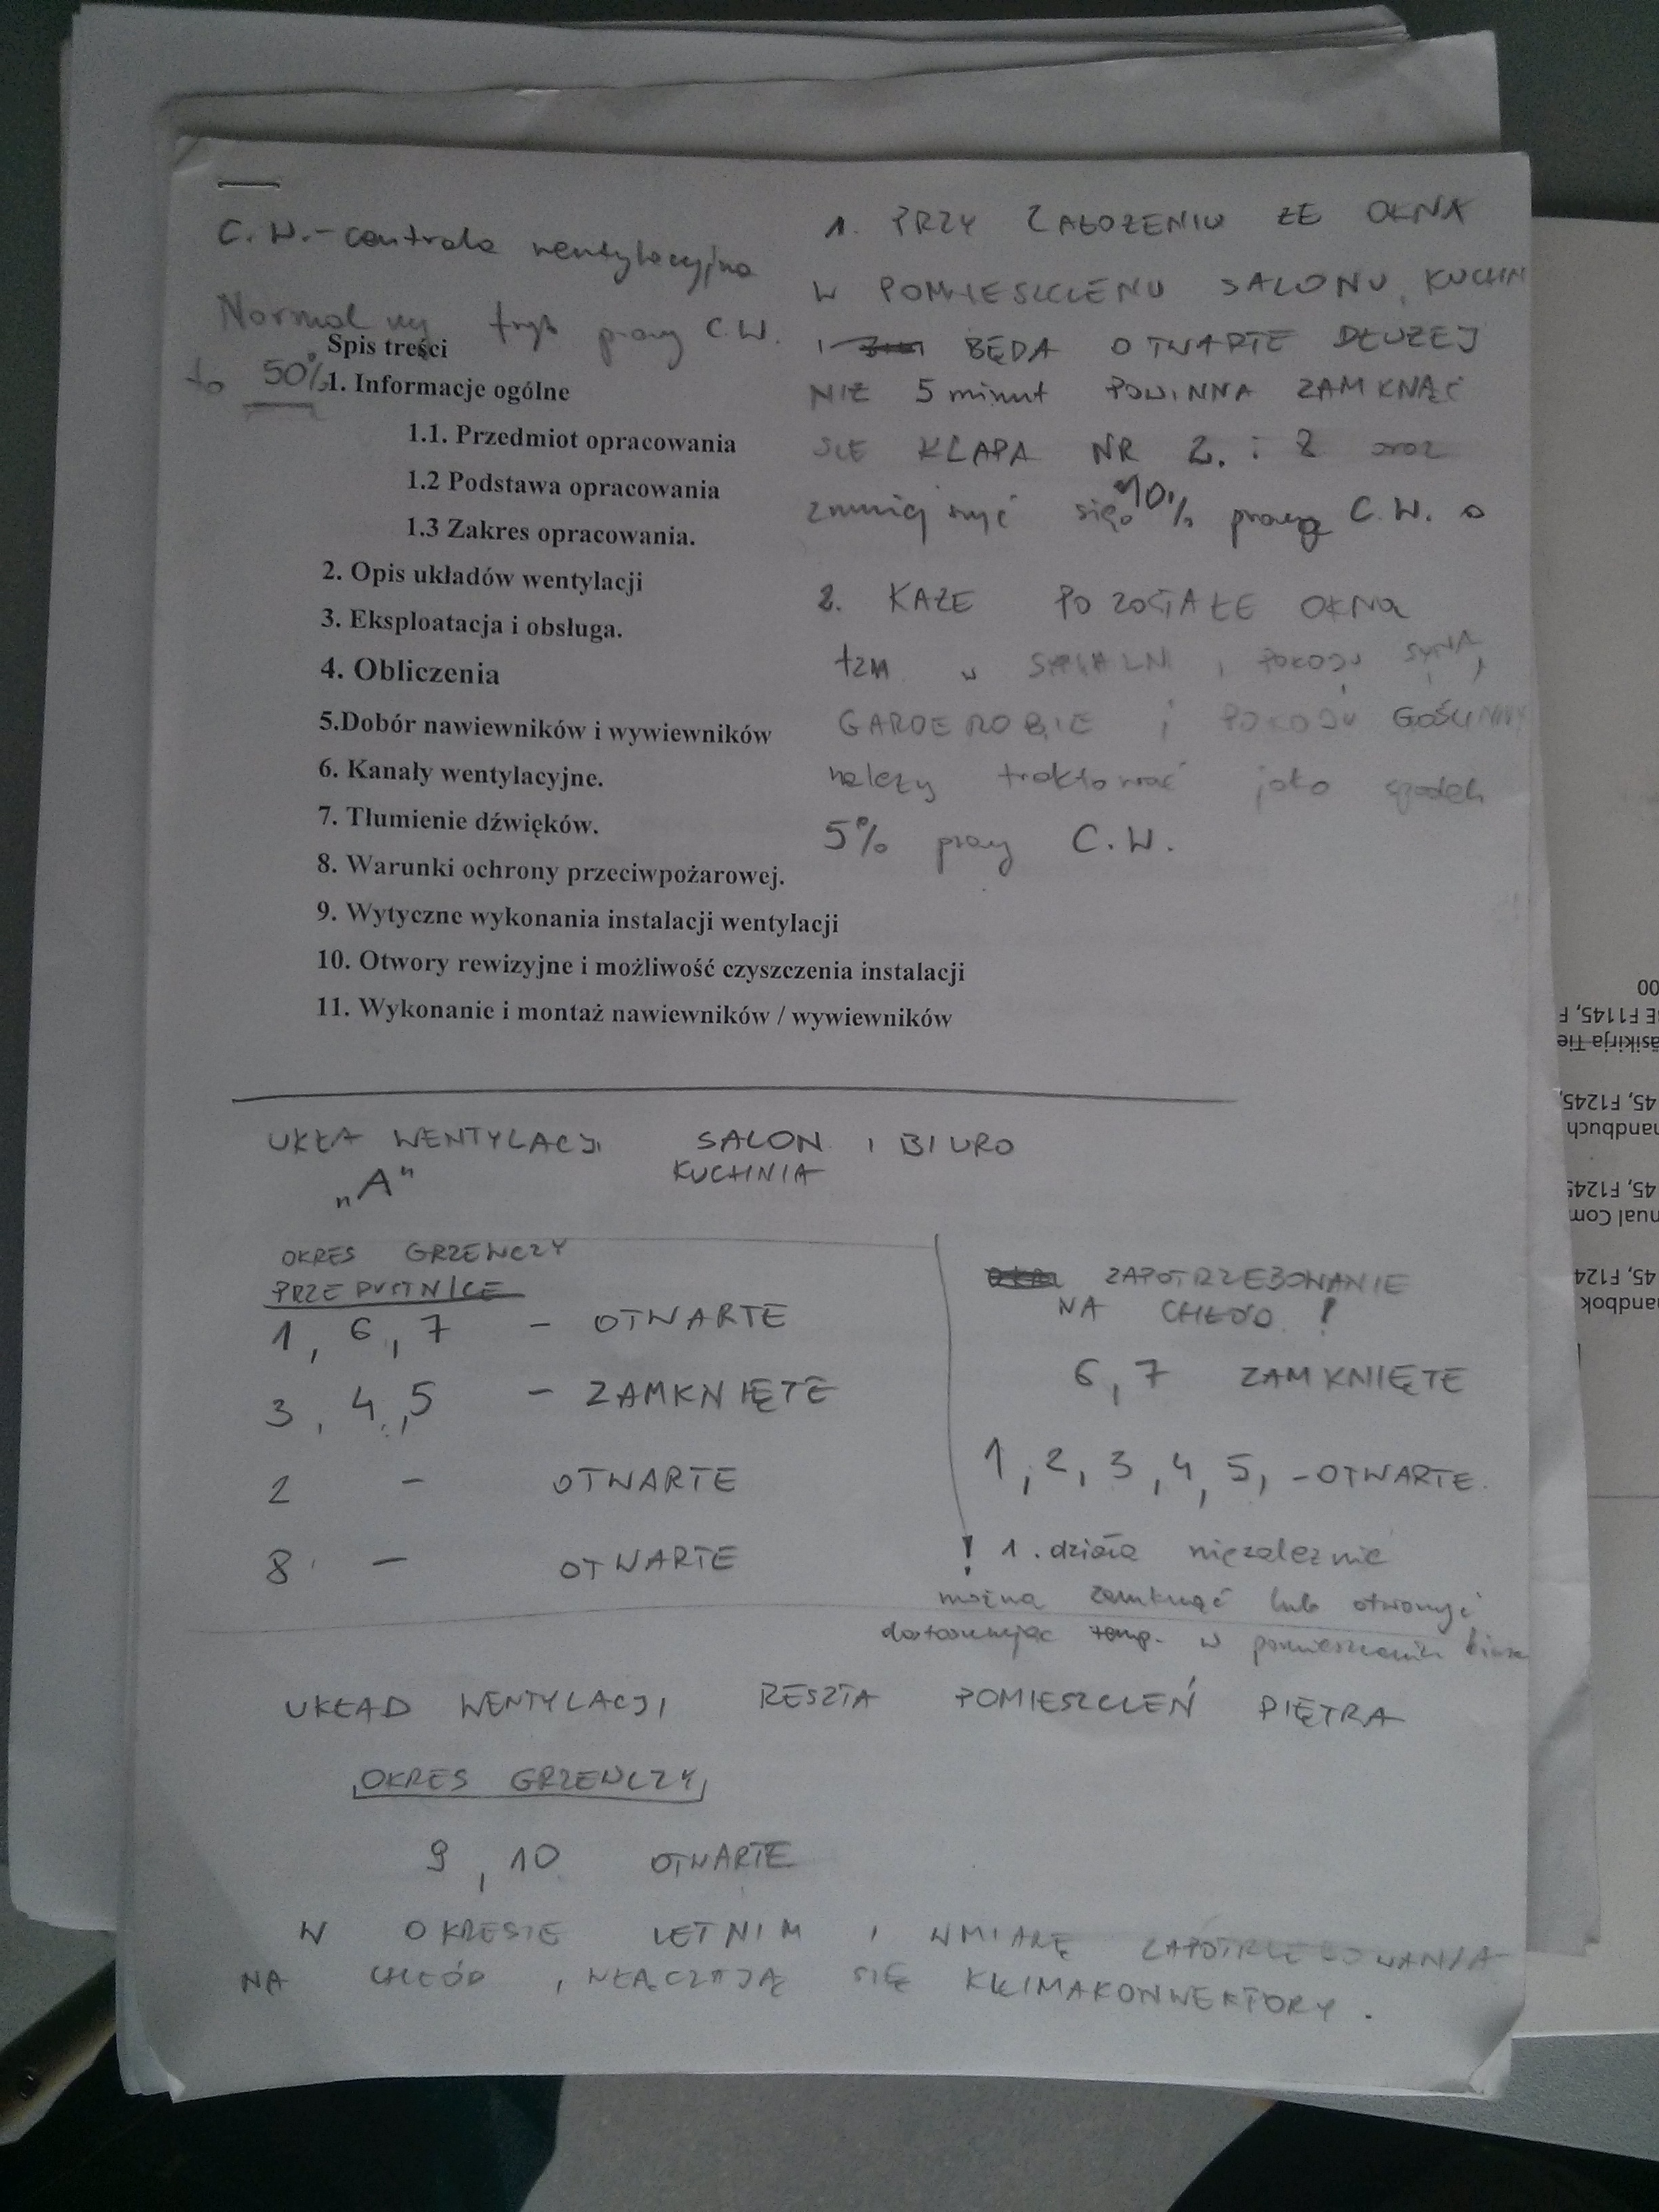 C.W.- centrala wentylacyjna
Normalny tryb pracy C.W.
to 50%
Spis treści
1. Informacje ogólne
1.1. Przedmiot opracowania
1.2 Podstawa opracowania
1.3 Zakres opracowania.
2. Opis układów wentylacji
3. Eksploatacja i obsługa.
4. Obliczenia
5.Dobór nawiewników i wywiewników
6. Kanały wentylacyjne.
7. Tłumienie dźwięków.
8. Warunki ochrony przeciwpożarowej.
9. Wytyczne wykonania instalacji wentylacji
10. Otwory rewizyjne i możliwość czyszczenia instalacji
11. Wykonanie i montaż nawiewników / wywiewników
1. PRZY ZAŁOŻENIU ŻE OKNA
W POMIESZCZENU SALONU, KUCHN
I BĘDA OTWARTE DŁUŻEJ
NIŻ 5 minut POWINNA ZAMKNĄĆ
SIĘ KLAPA NR 2. i 8 oraz
zmniejszyć się 10% pracy C.W. o
2. KAŻE POZOSTAŁE OKNA
tzn w SYPIALNI, POKOJU SYNA,
GARDEROBIE i POKOJU GOŚCINNY
należy traktować jako spadek
5% pracy C.W.
UKŁA WENTYLACJI SALON I BIURO
„A" KUCHNIA
OKRES GRZEWCZY
PRZEPUSTNICE
1, 6, 7 - OTWARTE
3, 4, 5 - ZAMKNIĘTE
2 - OTWARTE
8 - OTWARTE
ZAPOTRZEBOWANIE
NA CHŁÓD !
6, 7 ZAMKNIĘTE
1, 2, 3, 4, 5, - OTWARTE.
! 1. działa niezależnie
można zamknąć lub otworzyć
dostosowując temp. w pomieszczeniu biura
UKŁAD WENTYLACJI RESZTA POMIESZCZEŃ PIĘTRA
OKRES GRZEWCZY
9, 10 OTWARTE
W OKRESIE LETNIM I WMIARĘ ZAPOTRZEBOWANIA
NA CHŁÓD, WŁĄCZAJĄ SIĘ KLIMAKONWEKTORY.
00
E F1145, F
äsikirja Tie
45, F1245,
andbuch
45, F1245
nual Com
45, F124
andbok